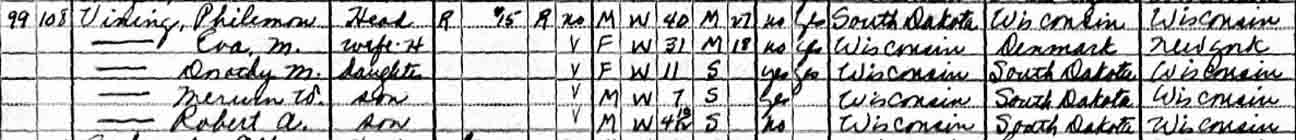 99 108 Vining, Philemon Head R 15 R no M W 40 M 27 no yes South Dakota Wisconsin Wisconsin
— Eva, M. wife-H V F W 31 M 18 no yes Wisconsin Denmark New York
— Dorothy M. daughter V F W 11 S yes yes Wisconsin South Dakota Wisconsin
— Mervin W. son V M W 7 S yes Wisconsin South Dakota Wisconsin
— Robert A. son V M W S no Wisconsin South Dakota Wisconsin